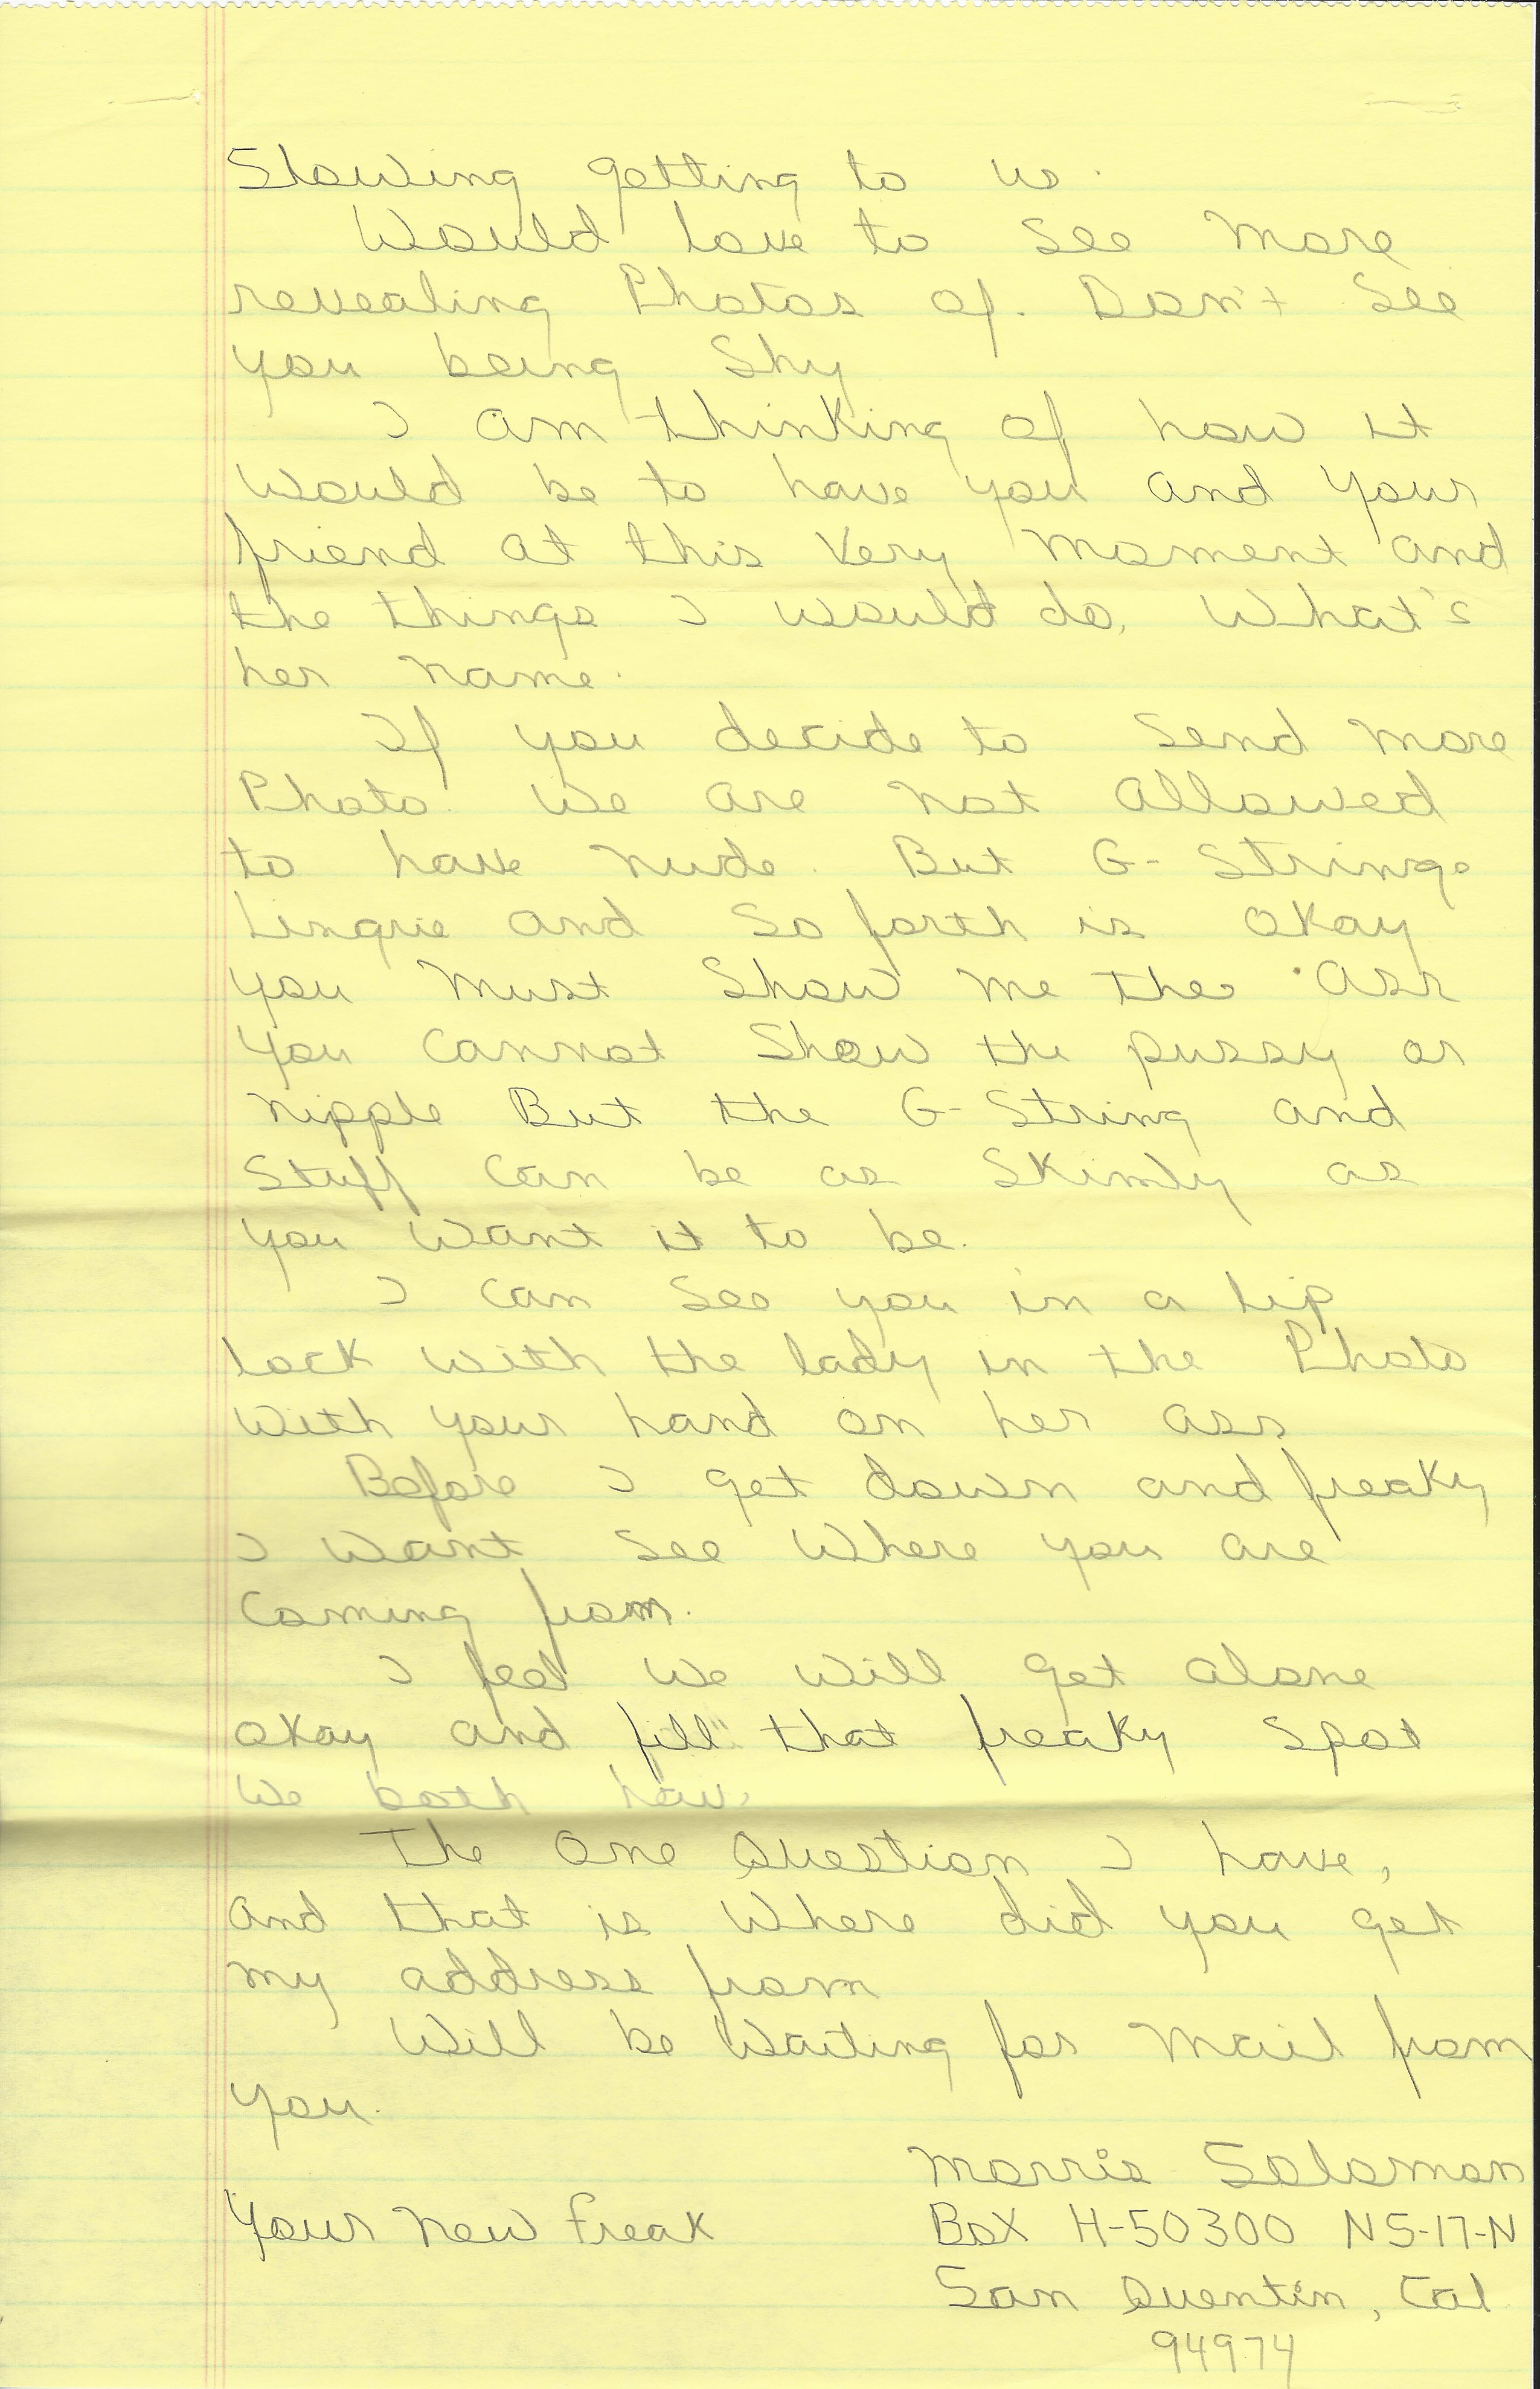 Slowing getting to us.
Would love to see more
revealing Photos of. Don't see
you being shy
I am thinking of how it
would be to have you and your
friend at this very moment and
the things I would do. What's
her name.
If you decide to send more
Photo. We are not allowed
to have nude. But G-Strings
Lingrie and so forth is okay
you must show me the ass
you cannot show the pussy or
nipple But the G-String and
stuff can be as skimly as
you want it to be.
I can see you in a lip
lock with the lady in the Photo
with your hand on her ass
Before I get down and freaky
I want see where you are
coming from.
I feel we will get alone
okay and fill" that freaky spot
we both hav.
The one Question I have,
and that is where did you get
my address from
Will be waiting for mail from
you.
Morris Solomon
Your new freak Box H-50300 N5-17-N
San Quentin, Cal
94974